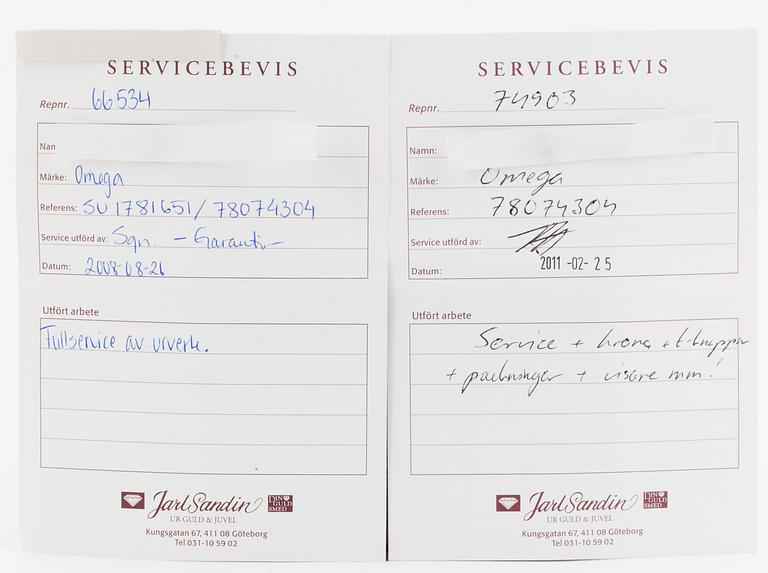 SERVICEBEVIS
Repnr. 66534
Nan
Märke: Omega
Referens: SU 1781651/78074304
Service utförd av: Sgn. - Garanti
Datum: 2008-08-26
Utfört arbete
Fullservice av urverk.
Jarl Sandin
DIN GULD SMED
UR GULD & JUVEL
Kungsgatan 67, 411 08 Göteborg
Tel 031-10 59 02
SERVICEBEVIS
Repnr. 74903
Namn:
Märke: Omega
Referens: 78074304
Service utförd av:
Datum: 2011-02-25
Utfört arbete
Service + krona + t-knappar
+ packningar + visare mm!
Jarl Sandin
DIN GULD SMED
UR GULD & JUVEL
Kungsgatan 67, 411 08 Göteborg
Tel 031-10 59 02